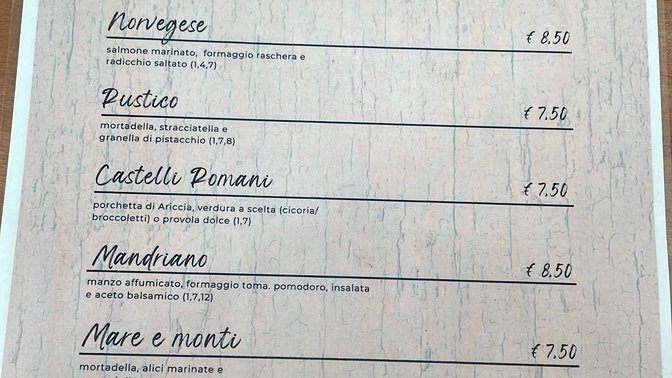 Norvegese € 8,50
salmone marinato, formaggio raschera e
radicchio saltato (1,4,7)
Rustico € 7,50
mortadella, stracciatella e
granella di pistacchio (1,7,8)
Castelli Romani € 7,50
porchetta di Ariccia, verdura a scelta (cicoria/
broccoletti) o provola dolce (1,7)
Mandriano € 8,50
manzo affumicato, formaggio toma. pomodoro, insalata
e aceto balsamico (1,7,12)
Mare e monti € 7,50
mortadella, alici marinate e